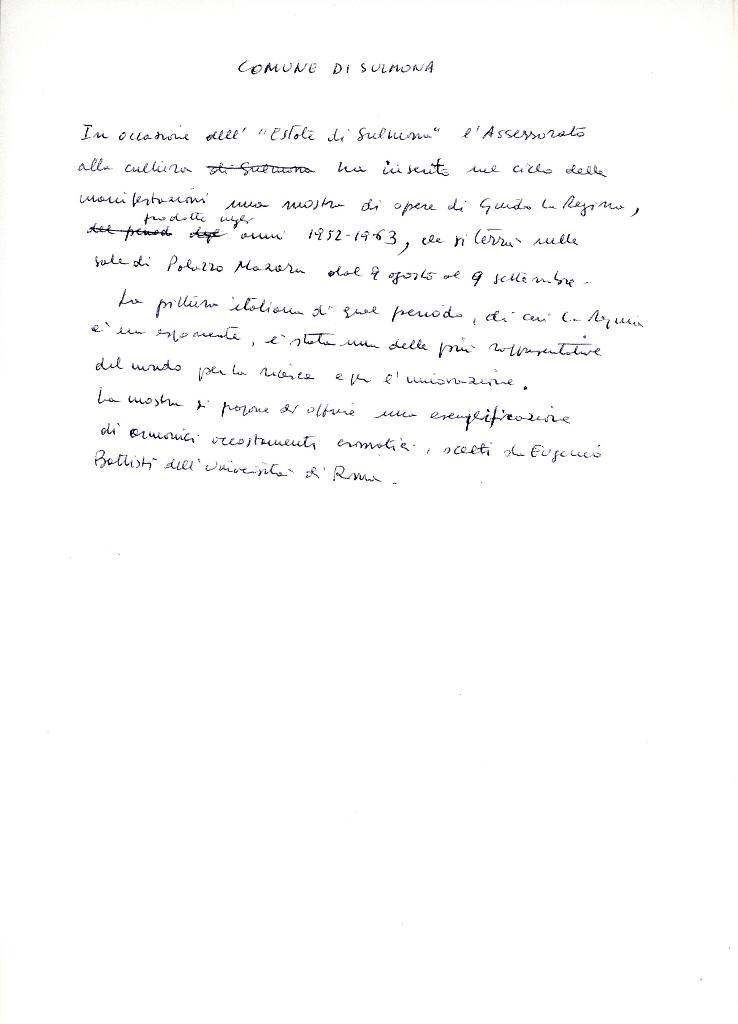 COMUNE DI SULMONA
In occasione dell' "Estate di Sulmona" l'Assessorato
alla cultura di Sulmona ha inserito nel ciclo delle
manifestazioni una mostra di opere di Guido La Regina,
prodotte negli
del periodo degli anni 1952-1963, che si terrà nelle
sale di Palazzo Mazara dal 9 agosto al 9 settembre.
La pittura italiana di quel periodo, di cui La Regina
è un esponente, è stata una delle più rappresentative
del mondo per la ricerca e per l'innovazione.
La mostra si propone di offrire una esemplificazione
di armonici accostamenti cromatici, scelti da Eugenio
Battisti dell'Università di Roma.